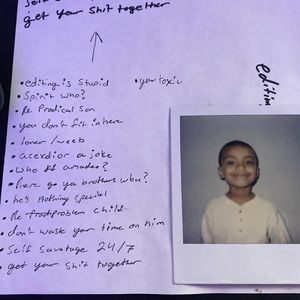 get your shit together
• editing is stupid
• your toxic
• Spirit who?
• Re Prodical son
• you don't fit in here
• loner/weeb
• a joke
• Who tf amadeo?
• there go ya brothers wbu?
• he's nothing special
• Re problem child
• don't waste your time on him
• self savotage 24/7
• get your shit together